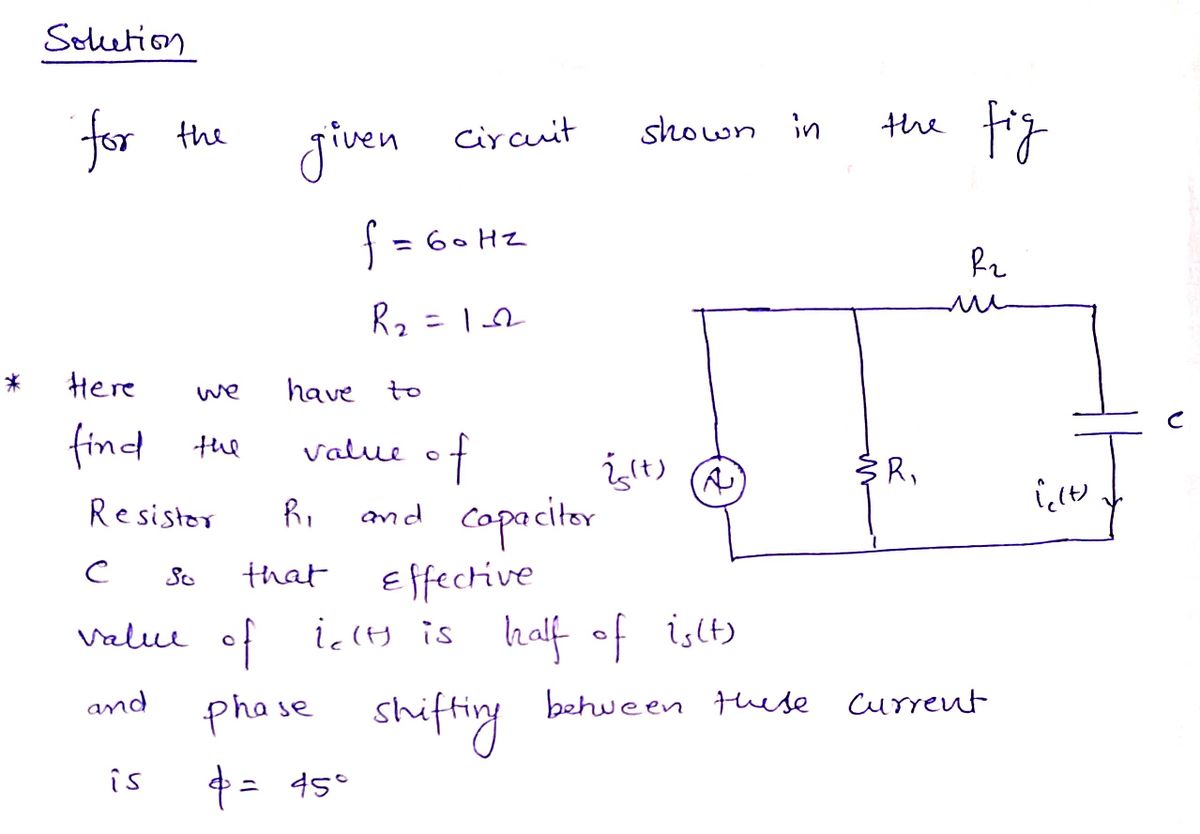 Solution
for the given circuit shown in the fig
f = 60 Hz
R₂ = 1 Ω
R₂
* Here we have to
find the value of
Resistor R₁ and capacitor
C so that Effective
value of i꜀(t) is half of iₛ(t)
and phase shifting between these current
is ϕ = 45°
iₛ(t)
R₁
C
i꜀(t)